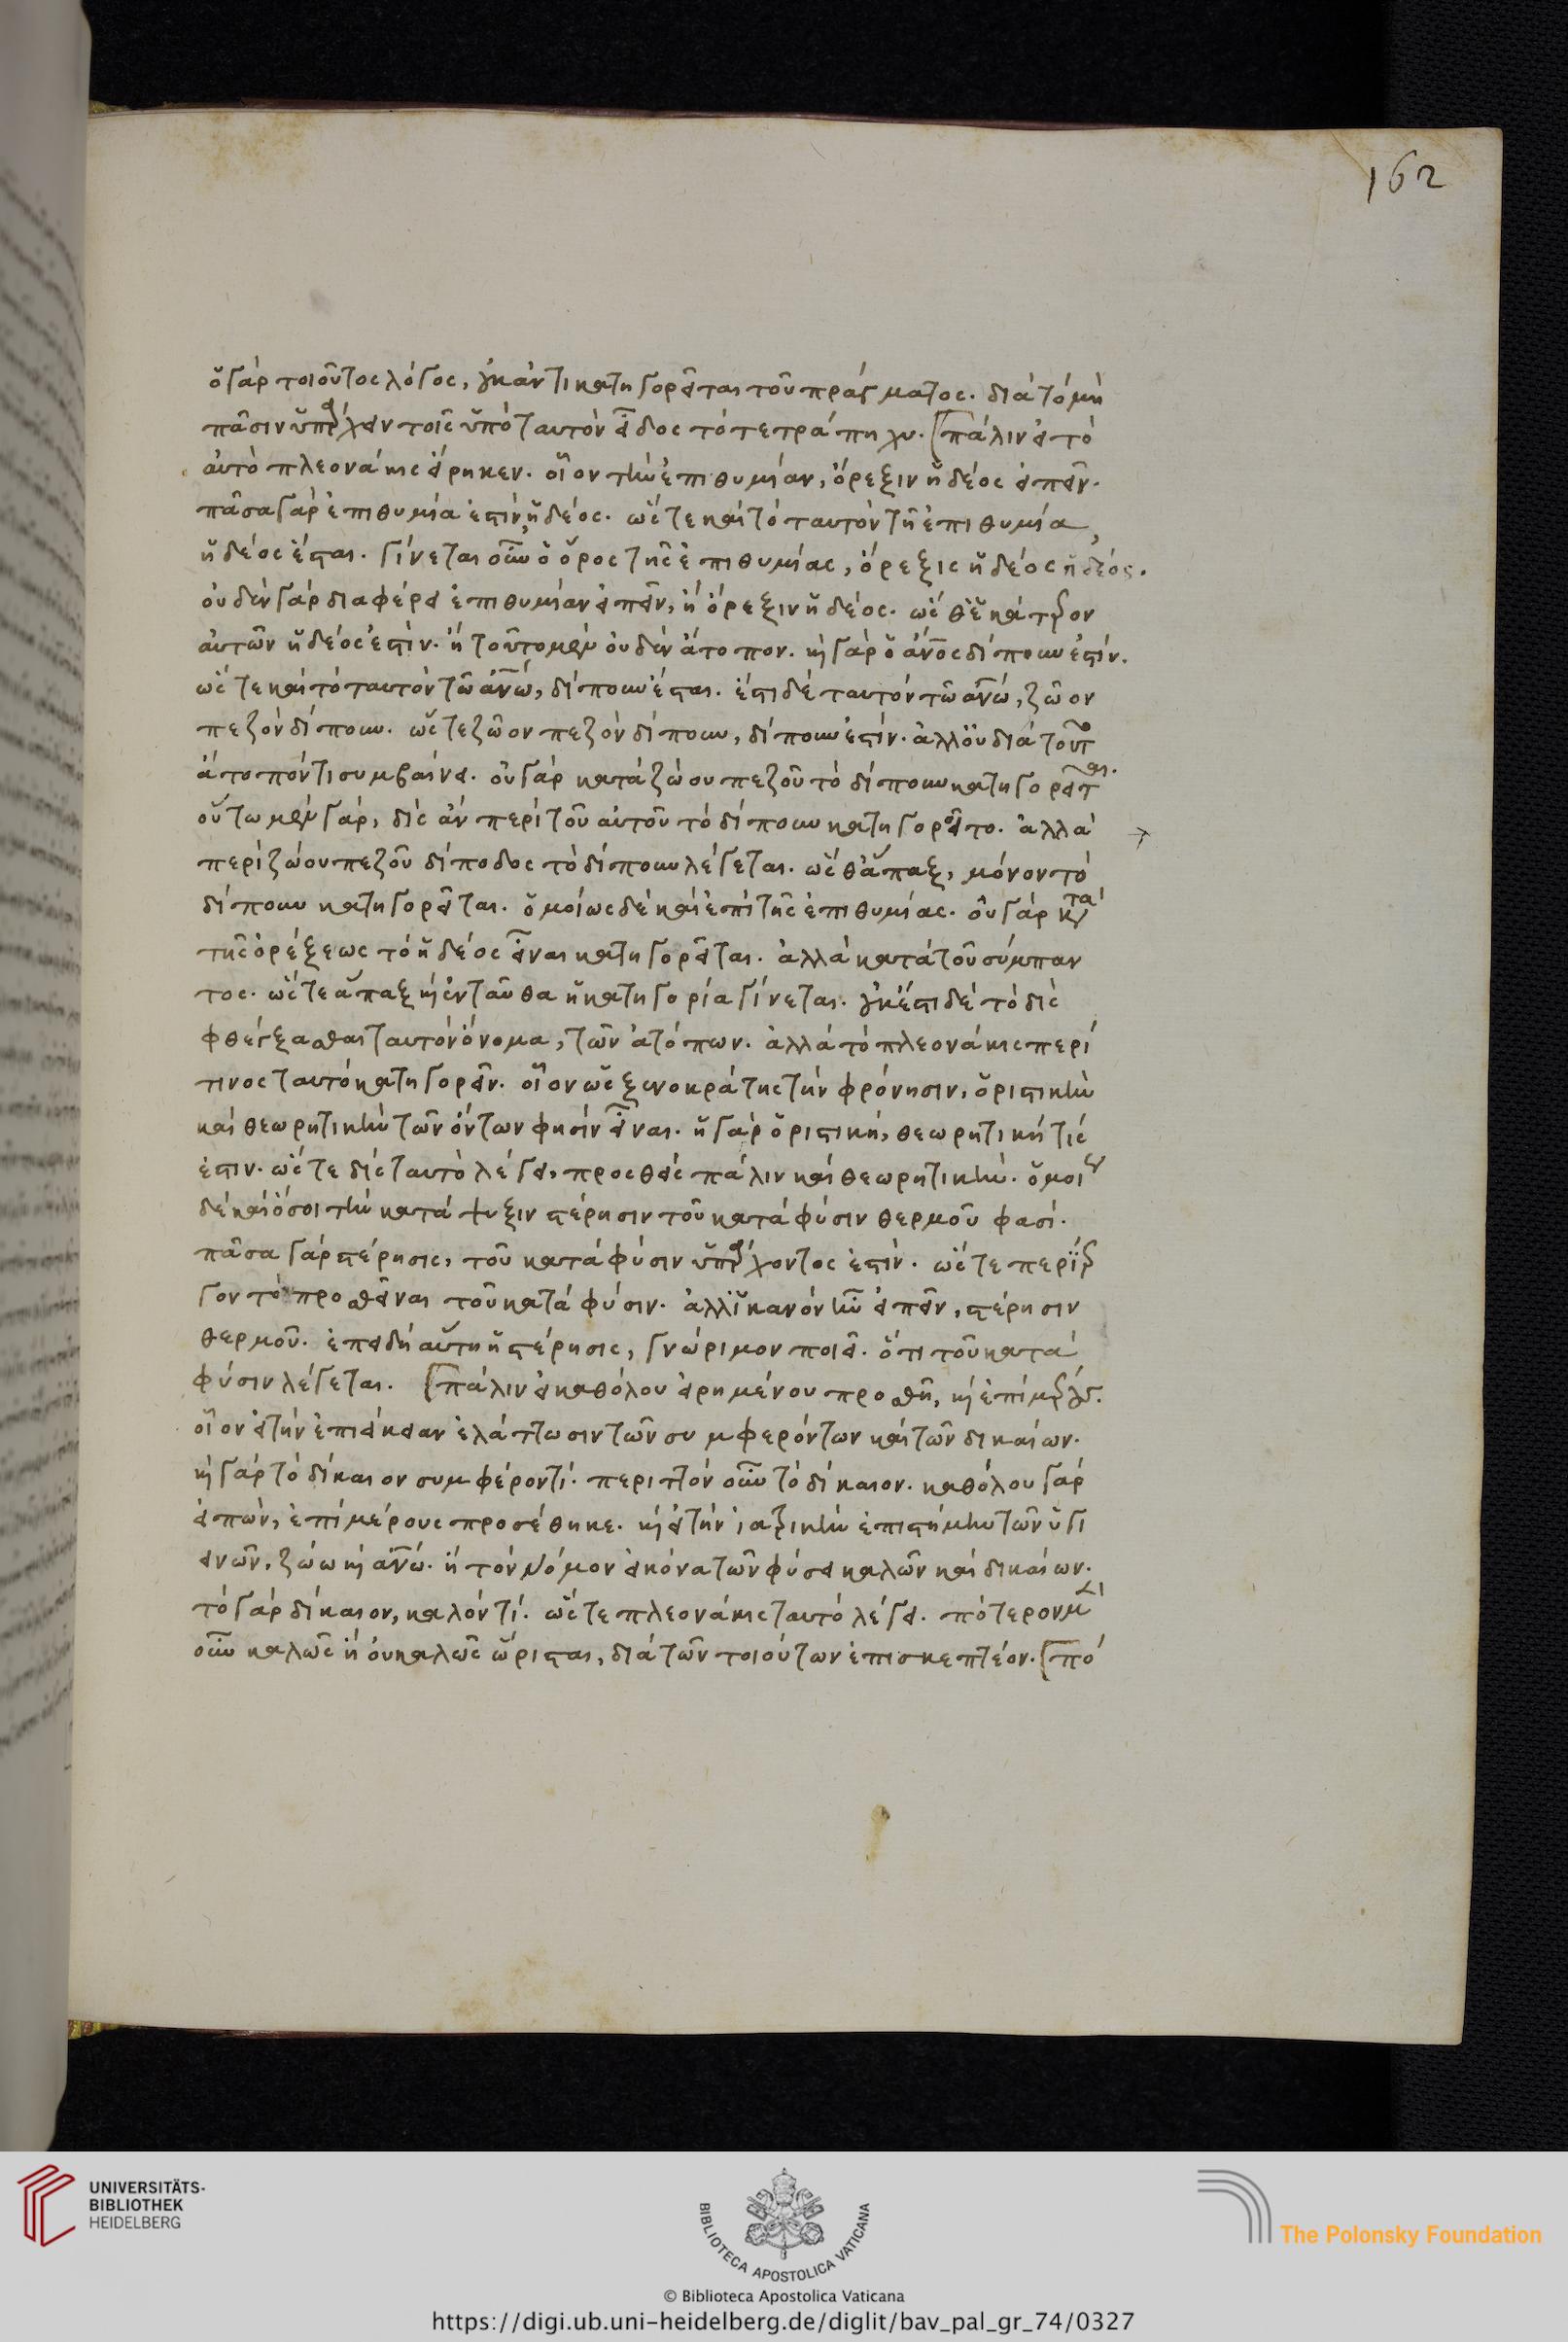 162
ὁ γὰρ τοιοῦτος λόγος, οὐκ ἀντικατηγορεῖται τοῦ πράγματος. διὰ τὸ μὴ
πᾶσιν ὑπάρχειν τοῖς ὑπὸ ταυτὸν εἶδος τὸ τετράπηχυ. πάλιν εἰ τὸ
αὐτὸ πλεονάκις εἴρηκεν. οἷον τὴν ἐπιθυμίαν, ὄρεξιν ἡδέος εἰπεῖν.
πᾶσα γὰρ ἐπιθυμία ἐστὶν, ἡδέος. ὥστε καὶ τὸ ταυτὸν τῇ ἐπιθυμία,
ἡδέος ἔσται. γίνεται οὖν ὁ ὅρος τῆς ἐπιθυμίας, ὄρεξις ἡδέος ἡδέος.
οὐδὲν γὰρ διαφέρει ἐπιθυμίαν εἰπεῖν, ἢ ὄρεξιν ἡδέος. ὥσθ' ἑκάτερον
αὐτῶν ἡδέος ἐστὶν. ἢ τοῦτο μὲν οὐδὲν ἄτοπον. καὶ γὰρ ὁ ἄνος δίπουν ἐστίν.
ὥστε καὶ τὸ ταυτὸν τῶ ἀνω, δίπουν ἔσται. ἔστι δὲ ταυτὸν τῶ ἀνω, ζῶον
πεζὸν δίπουν. ὥστε ζῶον πεζὸν δίπουν, δίπουν ἐστίν. ἀλλ' οὐ διὰ τοῦτο
ἄτοπόν τι συμβαίνει. οὐ γὰρ κατὰ ζώου πεζοῦ τὸ δίπουν κατηγορεῖται.
οὕτω μὲν γὰρ, δὶς ἂν περὶ τοῦ αὐτοῦ τὸ δίπουν κατηγοροῖτο. ἀλλὰ
περὶ ζώου πεζοῦ δίποδος τὸ δίπουν λέγεται. ὥσθ' ἅπαξ, μόνον τὸ
δίπουν κατηγορεῖται. ὁμοίως δὲ καὶ ἐπὶ τῆς ἐπιθυμίας. οὐ γὰρ κατὰ
τῆς ὀρέξεως τὸ ἡδέος εἶναι κατηγορεῖται. ἀλλὰ κατὰ τοῦ σύμπαν
τος. ὥστε ἅπαξ καὶ ἐνταῦθα ἡ κατηγορία γίνεται. οὐκ ἔστι δὲ τὸ δὶς
φθέγξασθαι ταυτὸν ὄνομα, τῶν ἀτόπων. ἀλλὰ τὸ πλεονάκις περί
τινος ταυτὸ κατηγορεῖν. οἷον ὡς ξενοκράτης τὴν φρόνησιν, ὁριστικὴν
καὶ θεωρητικὴν τῶν ὄντων φησὶν εἶναι. ἡ γὰρ ὁριστικὴ, θεωρητική τίς
ἐστιν. ὥστε δὶς ταυτὸ λέγει, προσθεὶς πάλιν καὶ θεωρητικὴν. ὁμοίως
δὲ καὶ ὅσοι τὴν κατάψυξιν στέρησιν τοῦ κατὰ φύσιν θερμοῦ φασί.
πᾶσα γὰρ στέρησις, τοῦ κατὰ φύσιν ὑπάρχοντος ἐστίν. ὥστε περίερ
γον τὸ προσθεῖναι τοῦ κατὰ φύσιν. ἀλλ' ἱκανὸν ἦν εἰπεῖν, στέρησιν
θερμοῦ. ἐπειδὴ αὕτη ἡ στέρησις, γνώριμον ποιεῖ. ὅτι τοῦ κατὰ
φύσιν λέγεται. πάλιν εἰ καθόλου εἰρημένου προσθῆ, καὶ ἐπὶ μέρους.
οἷον εἰ τὴν ἐπιείκειαν ἐλάττωσιν τῶν συμφερόντων καὶ τῶν δικαίων.
καὶ γὰρ τὸ δίκαιον συμφέρον τί. περιττὸν οὖν τὸ δίκαιον. καθόλου γὰρ
εἰπὼν, ἐπὶ μέρους προσέθηκε. καὶ εἰ τὴν ἰατρικὴν ἐπιστήμην τῶν ὑγι
εινῶν, ζώω καὶ ἀνω. ἢ τὸν νόμον εἰκόνα τῶν φύσει καλῶν καὶ δικαίων.
τὸ γὰρ δίκαιον, καλόν τί. ὥστε πλεονάκις ταυτὸ λέγει. πότερον μὲν
οὖν καλῶς ἢ οὐ καλῶς ὥρισται, διὰ τῶν τοιούτων ἐπισκεπτέον. πό
UNIVERSITÄTS-
BIBLIOTHEK
HEIDELBERG
BIBLIOTECA APOSTOLICA VATICANA
The Polonsky Foundation
© Biblioteca Apostolica Vaticana
https://digi.ub.uni-heidelberg.de/diglit/bav_pal_gr_74/0327